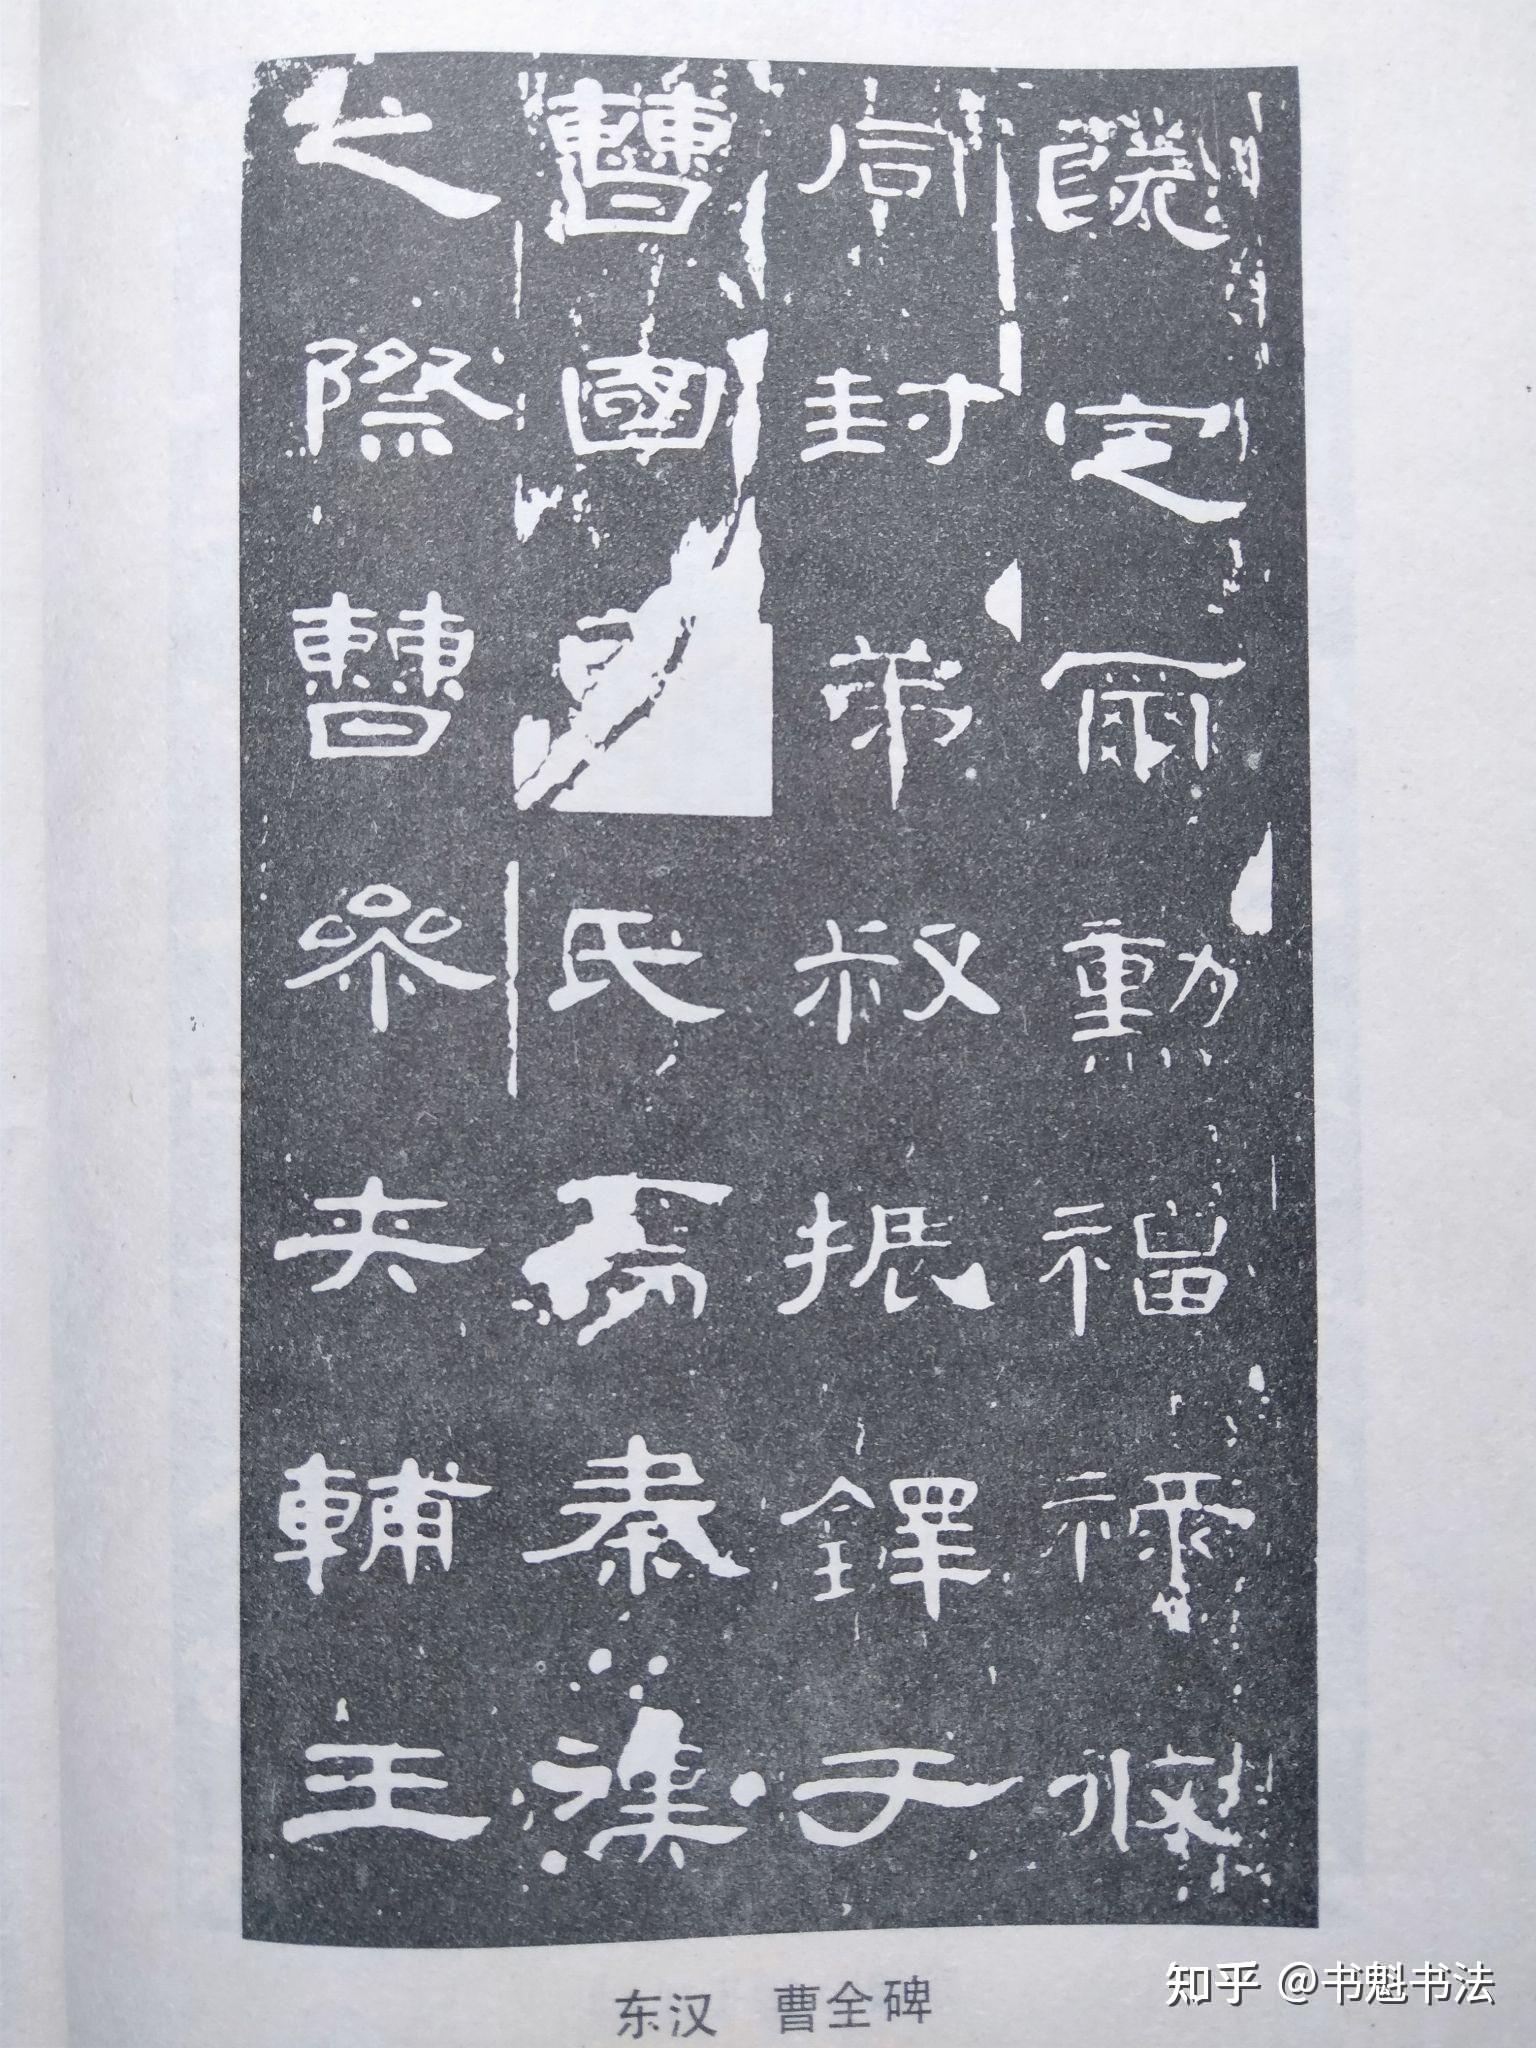 既定爾勳福祿攸
同封弟叔振鐸于
曹國氏焉秦漢
之際曹參夾輔王
东汉 曹全碑
知乎 @书魁书法